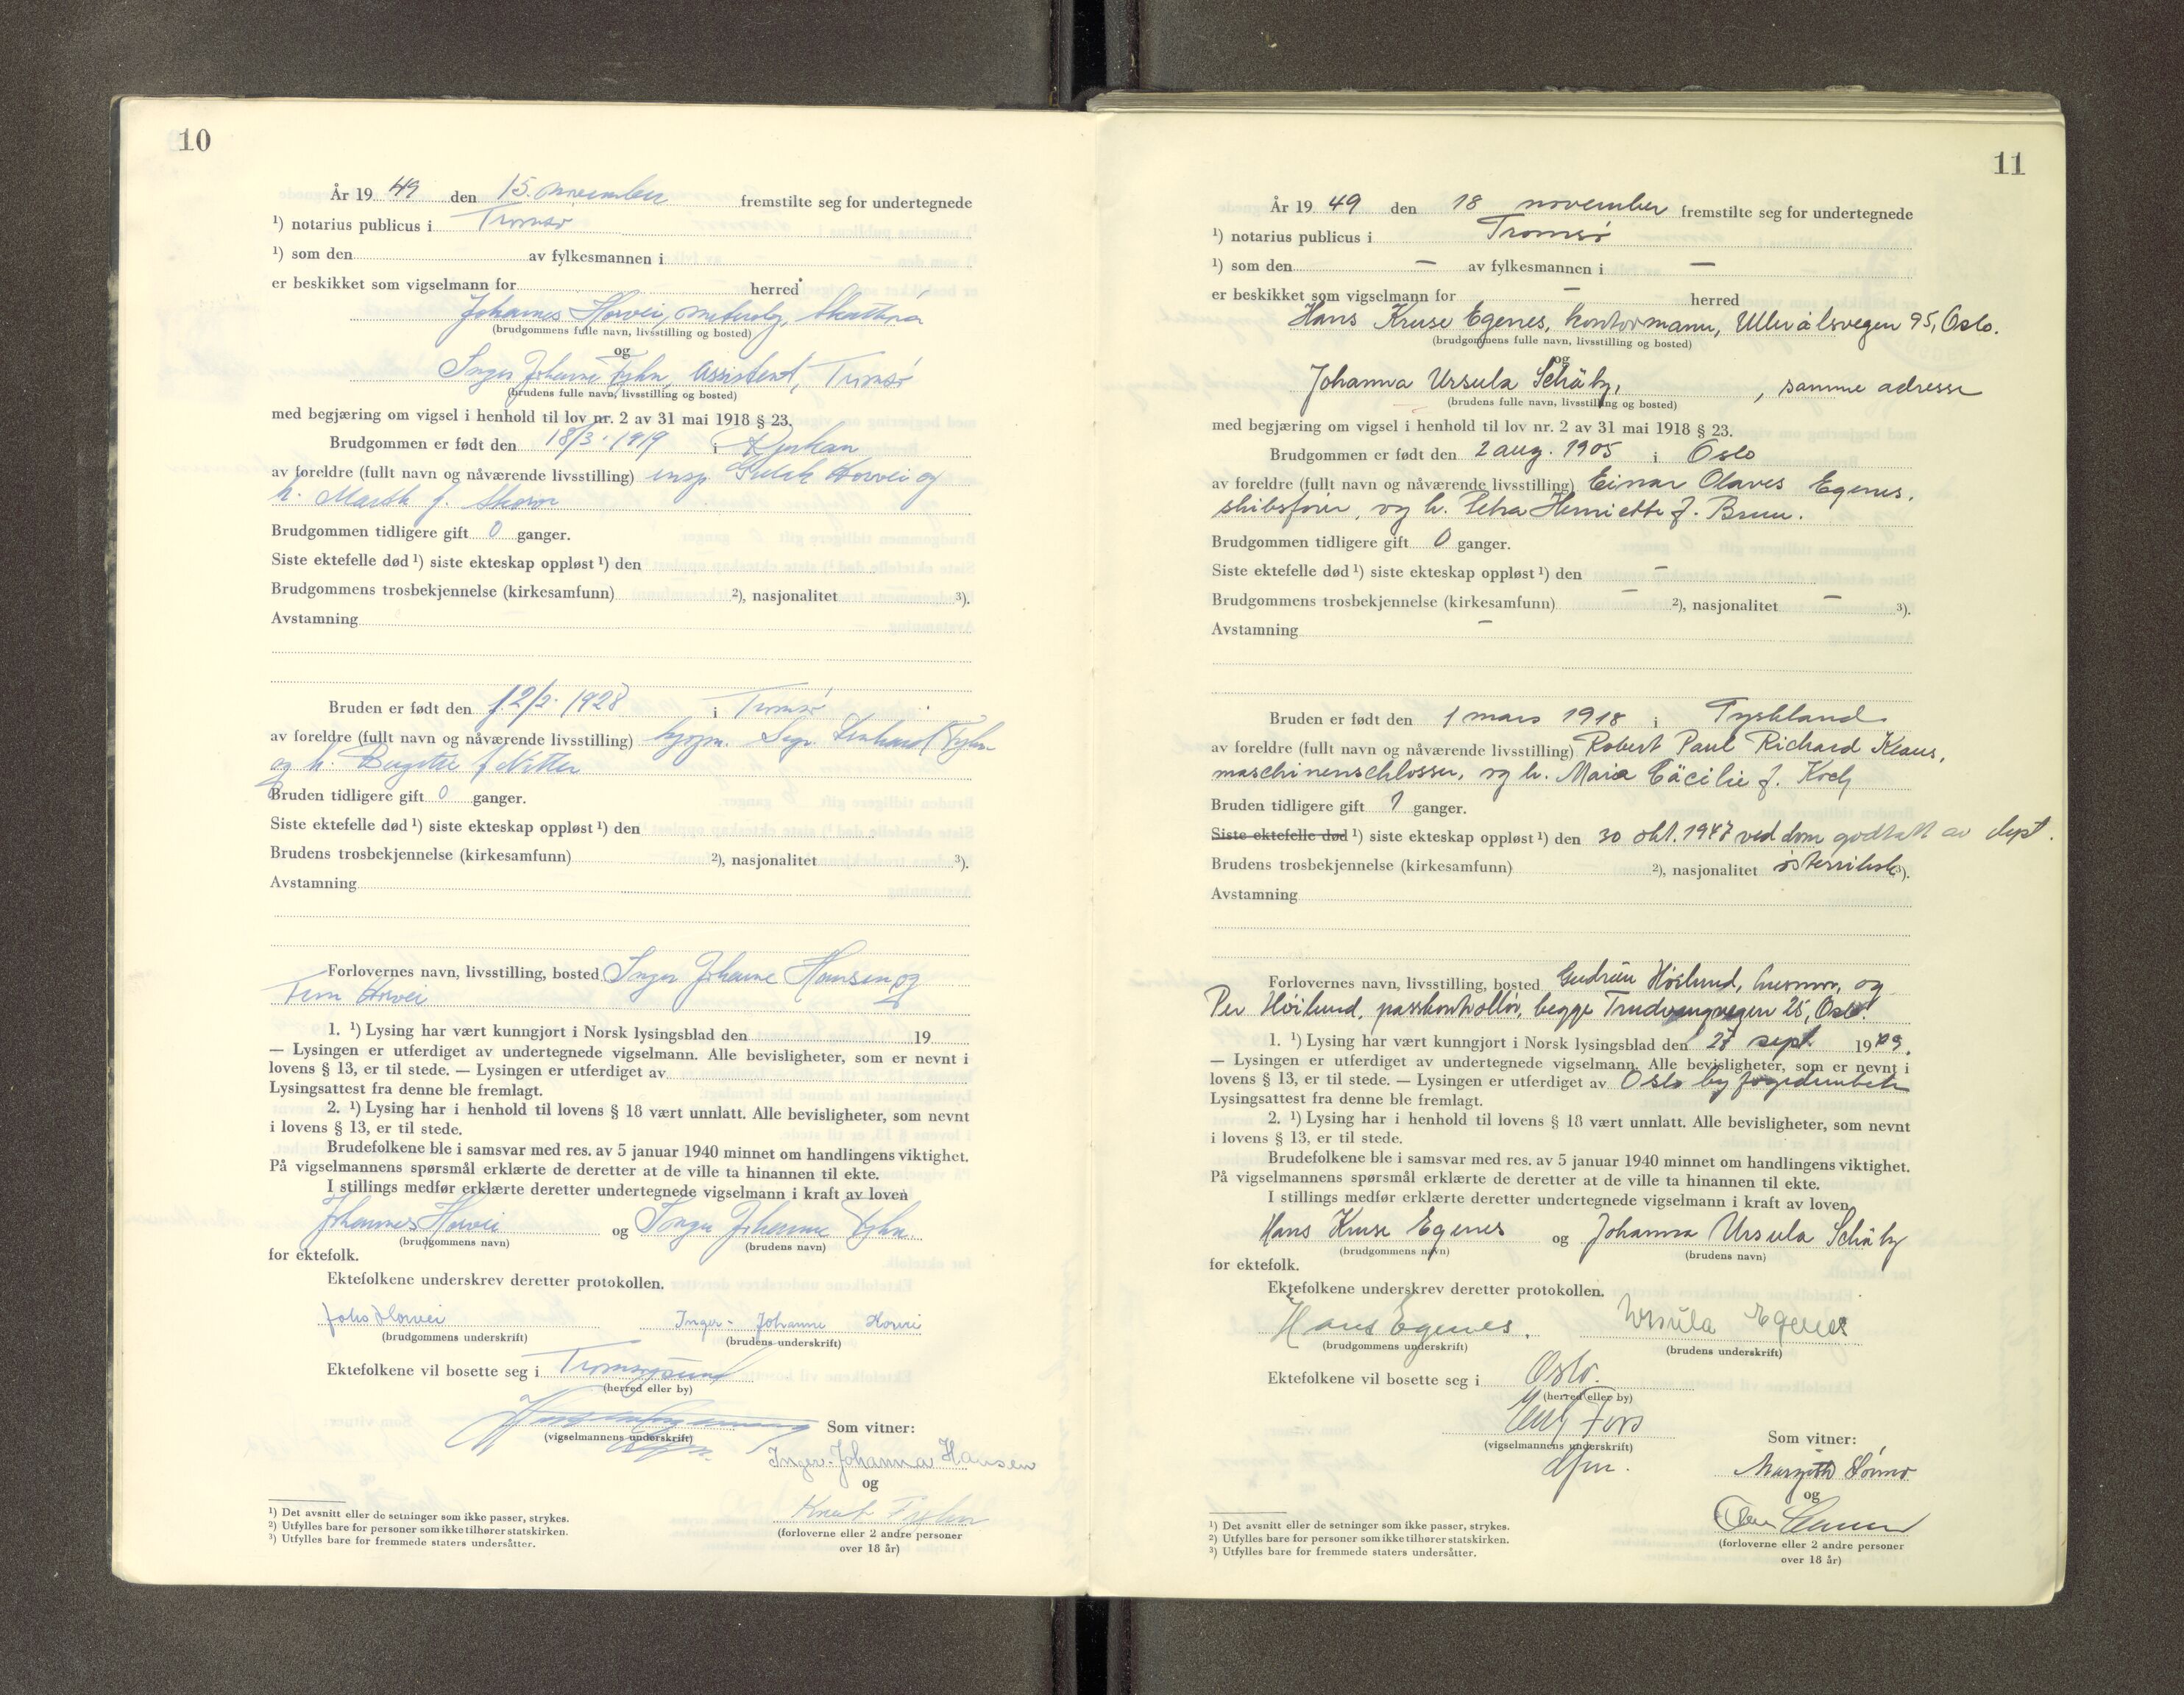 10
År 19 49 den 15. november fremstilte seg for undertegnede
¹) notarius publicus i Tromsø
¹) som den av fylkesmannen i
er beskikket som vigselmann for herred
Johannes Horvei, meteorolog, Skattøra
(brudgommens fulle navn, livsstilling og bosted)
og
Inger Johanne Fyhn, assistent, Tromsø
(brudens fulle navn, livsstilling og bosted)
med begjæring om vigsel i henhold til lov nr. 2 av 31 mai 1918 § 23.
Brudgommen er født den 18/3. 1919 i Rjukan
av foreldre (fullt navn og nåværende livsstilling) insp. Horvei og
h. f.
Brudgommen tidligere gift 0 ganger.
Siste ektefelle død ¹) siste ekteskap oppløst ¹) den
Brudgommens trosbekjennelse (kirkesamfunn) ²), nasjonalitet ³).
Avstamning
Bruden er født den 12/2. 1928 i Tromsø
av foreldre (fullt navn og nåværende livsstilling) Fyhn
og h. f.
Bruden tidligere gift 0 ganger.
Siste ektefelle død ¹) siste ekteskap oppløst ¹) den
Brudens trosbekjennelse (kirkesamfunn) ²), nasjonalitet ³).
Avstamning
Forlovernes navn, livsstilling, bosted Inger Johanne Hansen og
Horvei
1. ¹) Lysing har vært kunngjort i Norsk lysingsblad den 19
— Lysingen er utferdiget av undertegnede vigselmann. Alle bevisligheter, som er nevnt i
lovens § 13, er til stede. — Lysingen er utferdiget av
Lysingsattest fra denne ble fremlagt.
2. ¹) Lysing har i henhold til lovens § 18 vært unnlatt. Alle bevisligheter, som nevnt
i lovens § 13, er til stede.
Brudefolkene ble i samsvar med res. av 5 januar 1940 minnet om handlingens viktighet.
På vigselmannens spørsmål erklærte de deretter at de ville ta hinannen til ekte.
I stillings medfør erklærte deretter undertegnede vigselmann i kraft av loven
Johannes Horvei og Inger Johanne Fyhn
(brudgommens navn) (brudens navn)
for ektefolk.
Ektefolkene underskrev deretter protokollen.
Johs Horvei Inger-Johanne Horvei
(brudgommens underskrift) (brudens underskrift)
Ektefolkene vil bosette seg i Tromsøysund
(herred eller by)
Som vitner:
(vigselmannens underskrift)
Inger-Johanna Hansen
og
Knut Fyhn
(forloverne eller 2 andre personer
over 18 år)
¹) Det avsnitt eller de setninger som ikke passer, strykes.
²) Utfylles bare for personer som ikke tilhører statskirken.
³) Utfylles bare for fremmede staters undersåtter.
11
År 19 49 den 18 november fremstilte seg for undertegnede
¹) notarius publicus i Tromsø
¹) som den — av fylkesmannen i —
er beskikket som vigselmann for — herred
Hans Kruse Egenes, kontormann, Ullevålsvegen 95, Oslo.
(brudgommens fulle navn, livsstilling og bosted)
og
Johanna Ursula Schäby, , samme adresse
(brudens fulle navn, livsstilling og bosted)
med begjæring om vigsel i henhold til lov nr. 2 av 31 mai 1918 § 23.
Brudgommen er født den 2 aug. 1905 i Oslo
av foreldre (fullt navn og nåværende livsstilling) Einar Olaves Egenes,
skibsfører, og h. Petra Henriette f. Bruu.
Brudgommen tidligere gift 0 ganger.
Siste ektefelle død ¹) siste ekteskap oppløst ¹) den —
Brudgommens trosbekjennelse (kirkesamfunn) — ²), nasjonalitet — ³).
Avstamning —
Bruden er født den 1 mars 1918 i Tyskland
av foreldre (fullt navn og nåværende livsstilling) Robert Paul Richard Klaus,
maschinenschlosser, og h. Maria Cäcilie f. Koch
Bruden tidligere gift 1 ganger.
Siste ektefelle død ¹) siste ekteskap oppløst ¹) den 30 okt. 1947 ved dom godtatt av dept.
Brudens trosbekjennelse (kirkesamfunn) ²), nasjonalitet østerriksk ³).
Avstamning
Forlovernes navn, livsstilling, bosted Gudrun Höilund, husmor, og
Per Höilund, passkontrollør, begge Trudvangvegen 25, Oslo.
1. ¹) Lysing har vært kunngjort i Norsk lysingsblad den 27 sept 1949.
— Lysingen er utferdiget av undertegnede vigselmann. Alle bevisligheter, som er nevnt i
lovens § 13, er til stede. — Lysingen er utferdiget av Oslo byfogdembete
Lysingsattest fra denne ble fremlagt.
2. ¹) Lysing har i henhold til lovens § 18 vært unnlatt. Alle bevisligheter, som nevnt
i lovens § 13, er til stede.
Brudefolkene ble i samsvar med res. av 5 januar 1940 minnet om handlingens viktighet.
På vigselmannens spørsmål erklærte de deretter at de ville ta hinannen til ekte.
I stillings medfør erklærte deretter undertegnede vigselmann i kraft av loven
Hans Kruse Egenes og Johanna Ursula Schäby
(brudgommens navn) (brudens navn)
for ektefolk.
Ektefolkene underskrev deretter protokollen.
Hans Egenes. Ursula Egenes
(brudgommens underskrift) (brudens underskrift)
Ektefolkene vil bosette seg i Oslo.
(herred eller by)
(vigselmannens underskrift)
Som vitner:
og
(forloverne eller 2 andre personer
over 18 år)
¹) Det avsnitt eller de setninger som ikke passer, strykes.
²) Utfylles bare for personer som ikke tilhører statskirken.
³) Utfylles bare for fremmede staters undersåtter.